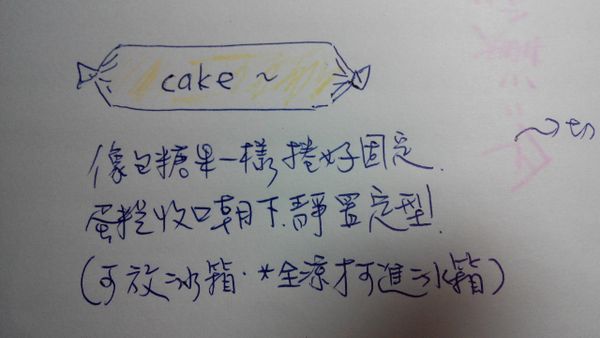 cake ~
像包糖果一樣,捲好固定.
~切
蛋糕收口朝下.靜置定型!
(可放冰箱.*全涼才可進冰箱)